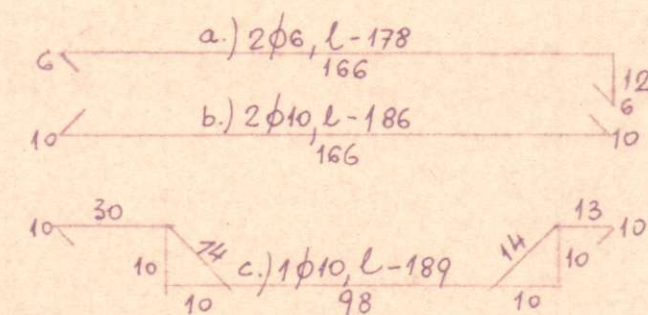 a.) 2ϕ6, l-178
6 166 12
6
b.) 2ϕ10, l-186
10 166 10
30 13
10 14 14 10
10 c.) 1ϕ10, l-189 10
10 98 10